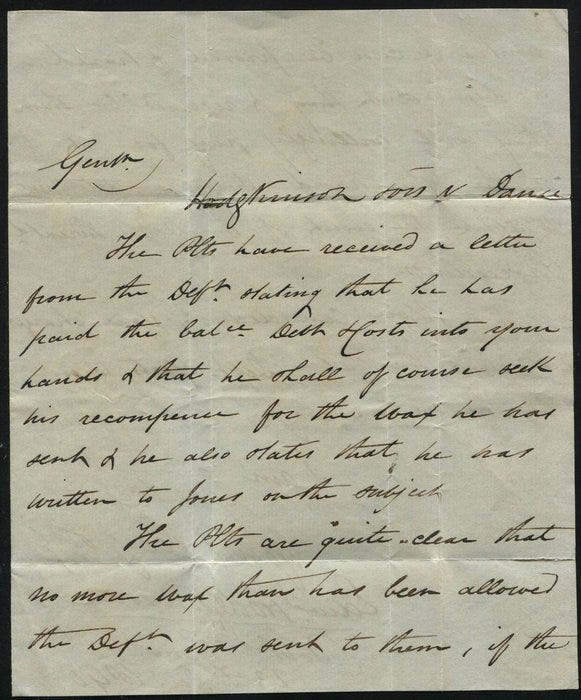 Gentn
Hodgkinson & ors v Dance
The Plts have received a letter
from the Deft. stating that he has
paid the balce. Debt & Costs into your
hands & that he shall of course seek
his recompence for the wax he has
sent & he also states that he has
written to Jones on the subject
The Plts are "quite" clear that
no more wax than has been allowed
the Deft. was sent to them, if the